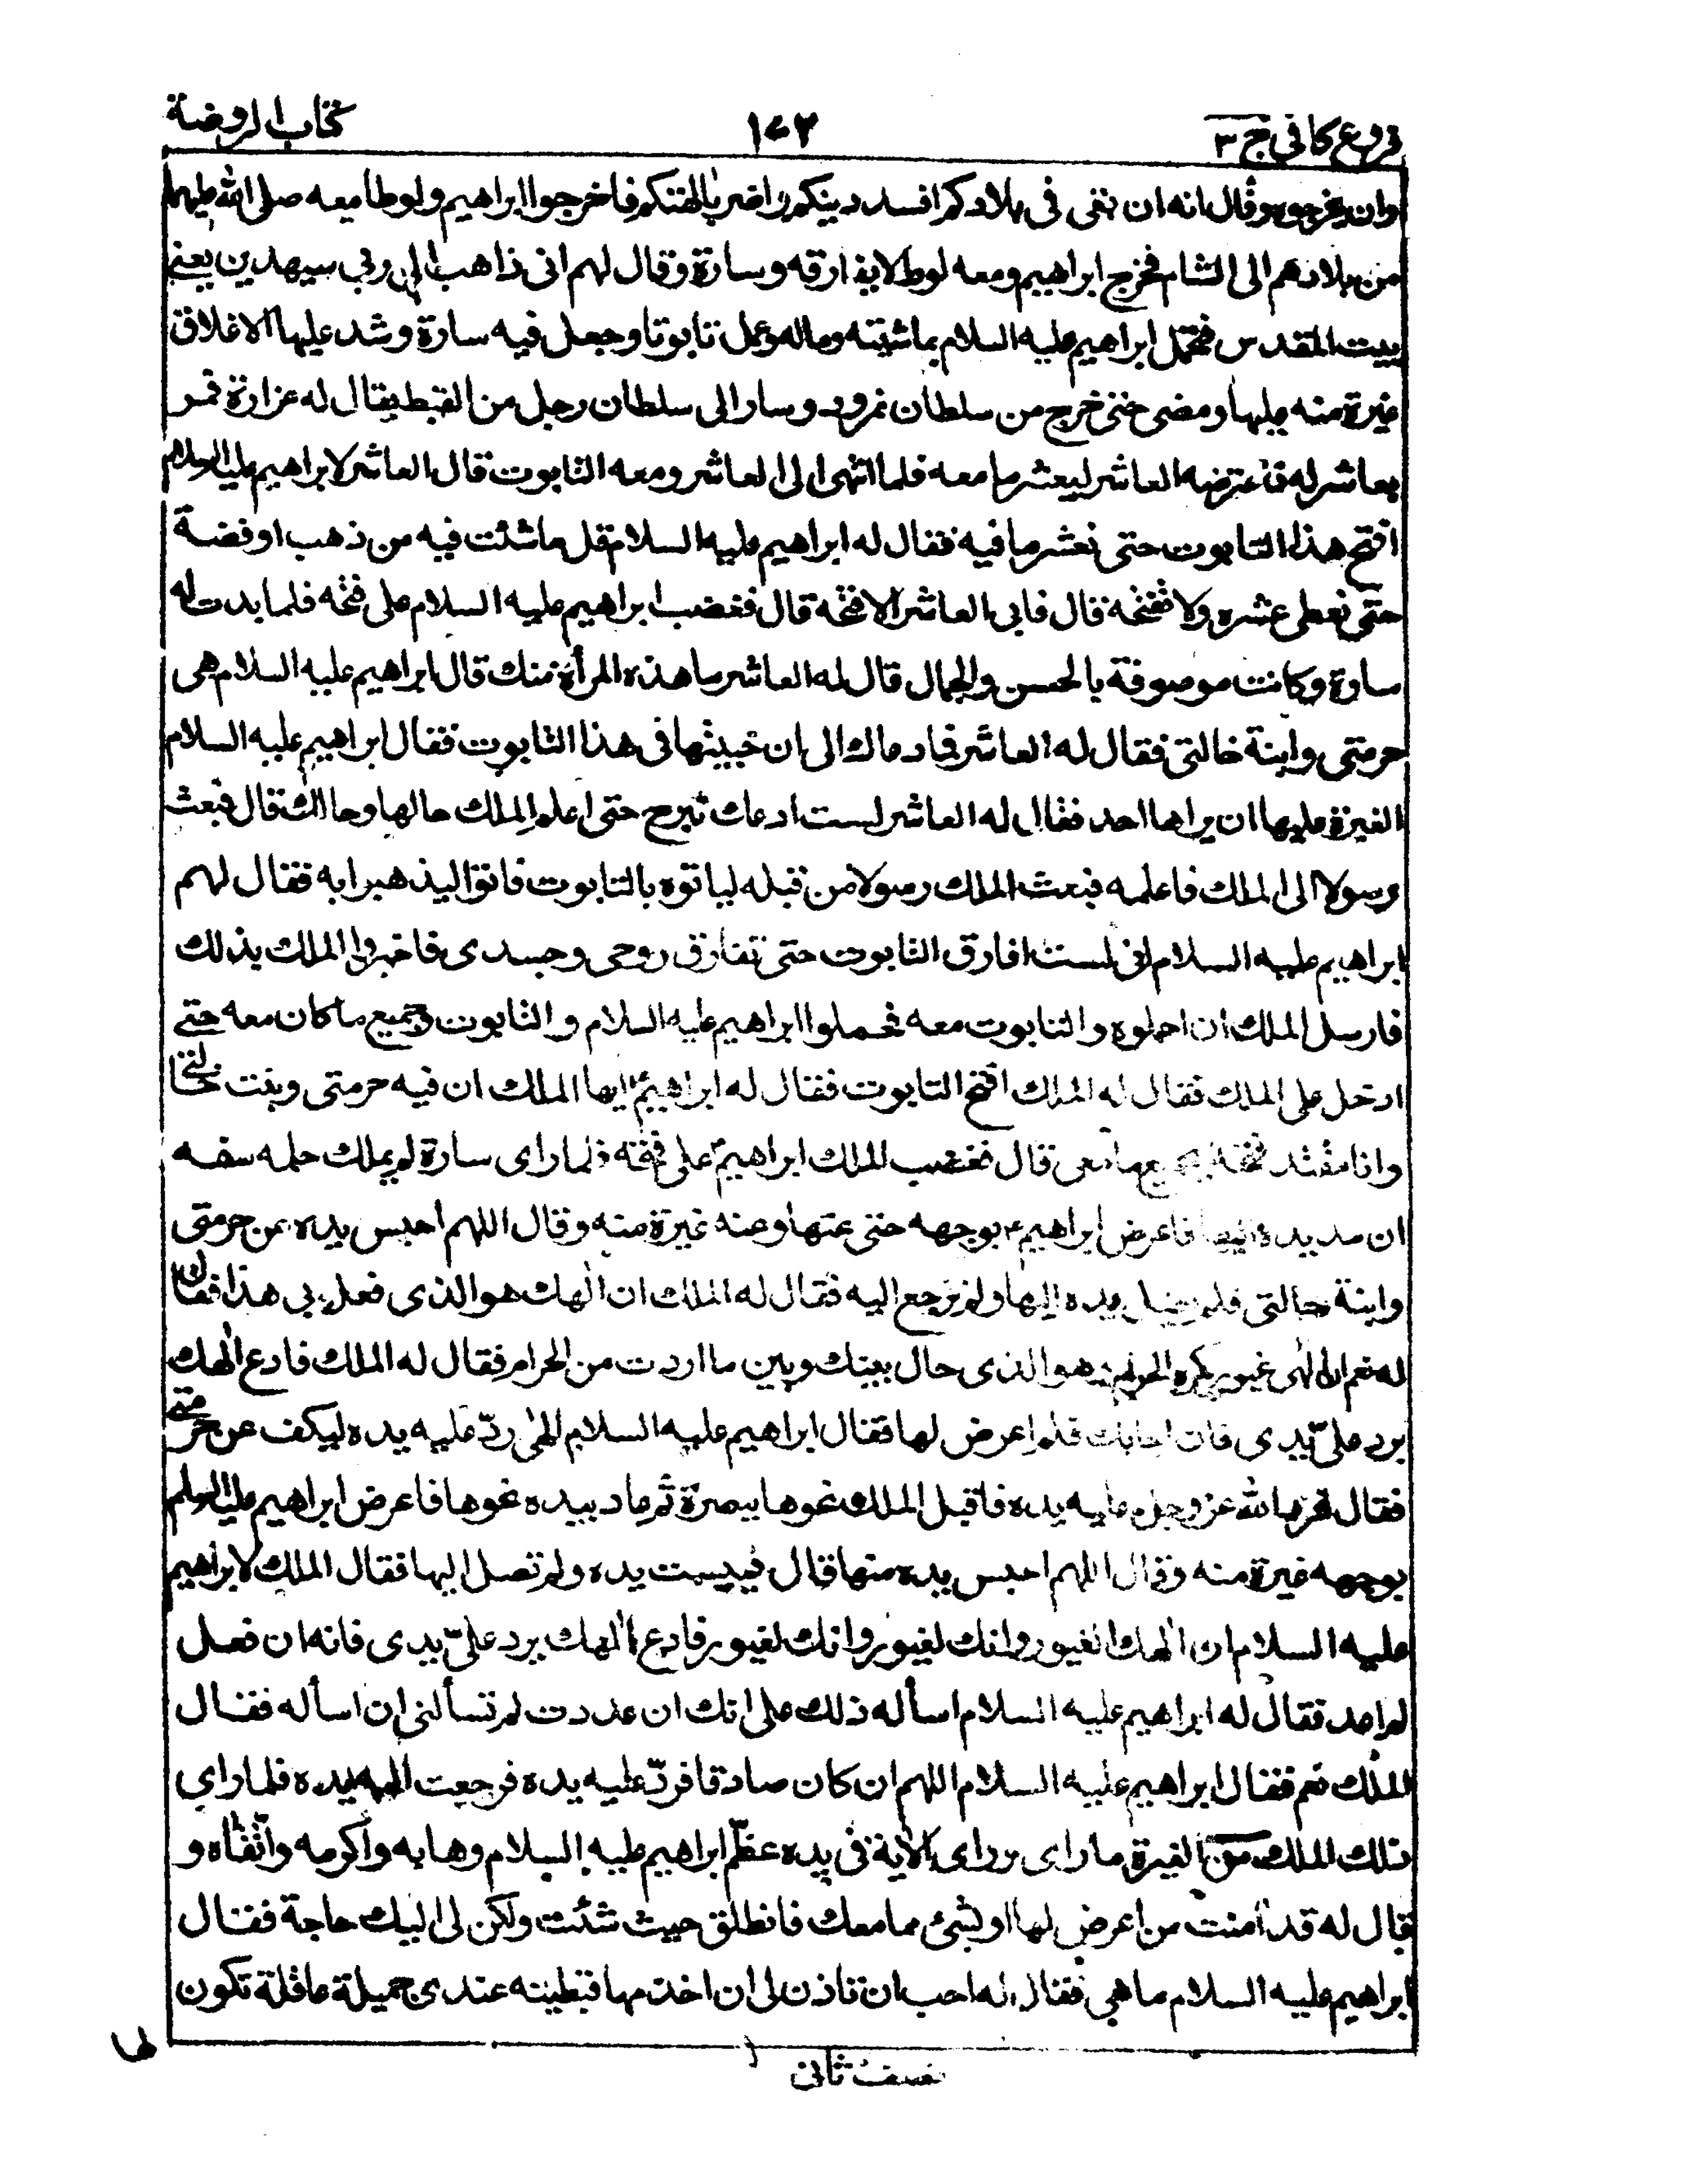 فروع كافى ج ٣
١٧٢
كتاب الروضة
وان يخرجوه وقال انه ان بقى فى بلادكم افسد دينكم واضر بالهتكم فاخرجوا ابراهيم ولوطا معه صلى الله عليهما
من بلادهم الى الشام فخرج ابراهيم ومعه لوط لا يفارقه وسارة وقال لهم انى ذاهب الى ربى سيهدين يعنى
بيت المقدس فتحمل ابراهيم عليه السلام بماشيته وماله وعمل تابوتا وجعل فيه سارة وشد عليها الاغلاق
غيرة منه عليها ومضى حتى خرج من سلطان نمرود وسار الى سلطان رجل من القبط يقال له عزارة فمر
بعاشر له فاعترضه العاشر ليعشر ما معه فلما انتهى الى العاشر ومعه التابوت قال العاشر لابراهيم عليه السلام
افتح هذا التابوت حتى نعشر ما فيه فقال له ابراهيم عليه السلام قل ما شئت فيه من ذهب او فضة
حتى نعطى عشره ولا نفتحه قال فابى العاشر الا فتحه قال فغضب ابراهيم عليه السلام على فتحه فلما بدت له
سارة وكانت موصوفة بالحسن والجمال قال له العاشر ما هذه المرأة منك قال ابراهيم عليه السلام هى
حرمتى وابنة خالتى فقال له العاشر فما دعاك الى ان خبيتها فى هذا التابوت فقال ابراهيم عليه السلام
الغيرة عليها ان يراها احد فقال له العاشر لست ادعك تبرح حتى اعلم الملك حالها وحالك قال فبعث
رسولا الى الملك فاعلمه فبعث الملك رسولا من قبله لياتوه بالتابوت فاتوا ليذهبوا به فقال لهم
ابراهيم عليه السلام انى لست افارق التابوت حتى تفارق روحى وجسدى فاخبروا الملك بذلك
فارسل الملك ان احملوه والتابوت معه فحملوا ابراهيم عليه السلام والتابوت وجميع ما كان معه حتى
ادخل على الملك فقال له الملك افتح التابوت فقال له ابراهيمؑ ايها الملك ان فيه حرمتى وبنت خالتى
وانا مفتد فتحه بجميع ما معى قال فغضب الملك ابراهيمؑ على فتحه فلما راى سارة لم يملك حلمه سفهه
ان مد يده اليها فاعرض ابراهيمؑ بوجهه حتى عنها وعنه غيرة منه وقال اللهم احبس يده عن حرمتى
وابنة خالتى فلم تصل يده اليها ولم ترجع اليه فقال له الملك ان الهك هو الذى فعل بى هذا فقال
له نعم ان الهى غيور يكره الحرام وهو الذى حال بينك وبين ما اردت من الحرام فقال له الملك فادع الهك
يرد علىّ يدى فان اجابك فلم اعرض لها فقال ابراهيم عليه السلام الهى ردّ عليه يده ليكف عن حرمتى
فقال فردها الله عز وجل عليه يده فاقبل الملك نحوها ببصره ثم عاد بيده نحوها فاعرض ابراهيم عليه السلم
بوجهه غيرة منه وقال اللهم احبس يده عنها قال فيبست يده ولم تصل اليها فقال الملك لابراهيم
عليه السلام ان الهك لغيور وانك لغيور وانك لغيور فادع الهك يرد علىّ يدى فانه ان فعل
لم اعد فقال له ابراهيم عليه السلام اسأله ذلك على انك ان عدت لم تسألنى ان اسأله فقال
الملك نعم فقال ابراهيم عليه السلام اللهم ان كان صادقا فردّ عليه يده فرجعت اليه يده فلما راى
ذلك الملك من الغيرة ما راى وراى الآية فى يده عظّم ابراهيم عليه السلام وهابه واكرمه واتقاه و
قال له قد امنت من اعرض لها او لشىء مما معك فانطلق حيث شئت ولكن لى اليك حاجة فقال
ابراهيم عليه السلام ما هى فقال له احب ان تاذن لى ان اخدمها قبطية عندى جميلة عاقلة تكون
لها
نصف ثانى